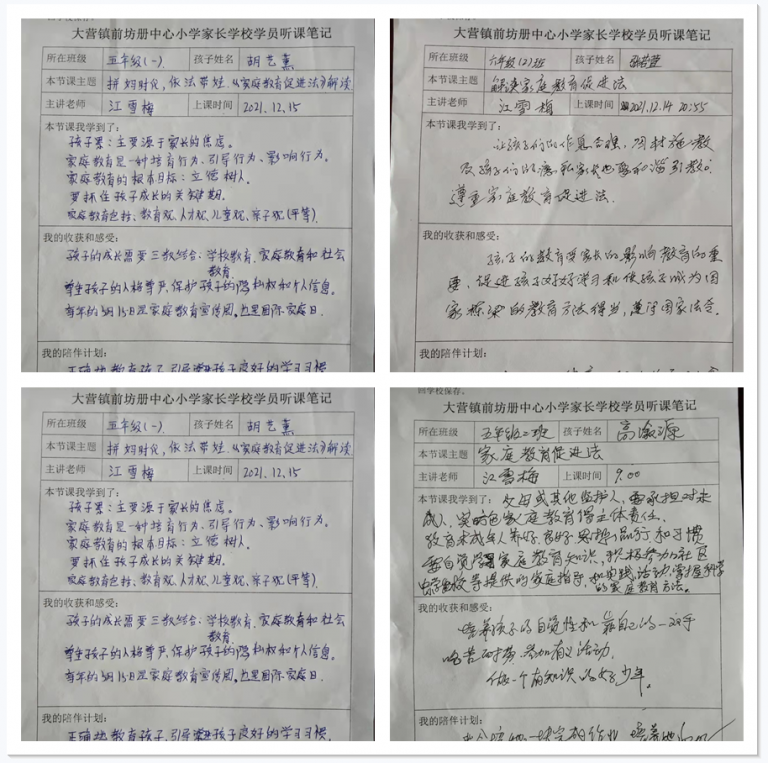 大营镇前坊册中心小学家长学校学员听课笔记
所在班级 五年级(一) 孩子姓名 胡艺薰
本节课主题 拼妈时代,依法带娃.《家庭教育促进法》解读
主讲老师 江雪梅 上课时间 2021.12.15
本节课我学到了:
孩子累:主要源于家长的焦虑。
家庭教育是一种培育行为、引导行为、影响行为。
家庭教育的根本目标:立德树人。
要抓住孩子成长的关键期。
家庭教育包括、教育观、人才观、儿童观、亲子观(平等).
我的收获和感受:
孩子的成长需要三教结合:学校教育.家庭教育和社会
教育.
尊重孩子的人格尊严,保护孩子的隐私权和个人信息。
每年的5月15日是家庭教育宣传周。也是国际家庭日.
我的陪伴计划:
教育孩子,引导孩子良好的学习习惯
大营镇前坊册中心小学家长学校学员听课笔记
所在班级 六年级(2)班 孩子姓名
本节课主题 解读家庭教育促进法
主讲老师 江雪梅 上课时间 2021.12.14 20:55
本节课我学到了:
让孩子们的作息合理,因材施教
及孩子们的隐私家长也要和谐引教。
遵重家庭教育促进法.
我的收获和感受:
孩子的教育受家长的影响教育的重
要,促进孩子好好学习和使孩子成为国
家栋梁的教育方法得当,遵守国家法令.
我的陪伴计划:
大营镇前坊册中心小学家长学校学员听课笔记
所在班级 五年级(一) 孩子姓名 胡艺薰
本节课主题 拼妈时代,依法带娃.《家庭教育促进法》解读
主讲老师 江雪梅 上课时间 2021.12.15
本节课我学到了:
孩子累:主要源于家长的焦虑。
家庭教育是一种培育行为、引导行为、影响行为。
家庭教育的根本目标:立德树人。
要抓住孩子成长的关键期。
家庭教育包括、教育观、人才观、儿童观、亲子观(平等).
我的收获和感受:
孩子的成长需要三教结合:学校教育.家庭教育和社会
教育.
尊重孩子的人格尊严,保护孩子的隐私权和个人信息。
每年的5月15日是家庭教育宣传周。也是国际家庭日.
我的陪伴计划:
教育孩子,引导孩子良好的学习习惯.
回学校保存。
大营镇前坊册中心小学家长学校学员听课笔记
所在班级 五年级二班 孩子姓名 高渝源
本节课主题 家庭教育促进法
主讲老师 江雪梅 上课时间 9.00
本节课我学到了: 父母或其他监护人,需承担对未
成人,实时包家庭教育得主体责任.
教育未成年人养好,良好,思想品行和习惯
家庭教育知识,积极参加社区
学校等提供的家庭指导,和实践活动,掌握科学
的家庭教育方法。
我的收获和感受:
培养孩子的自觉性和靠自己的一双手
吃苦耐劳.参加有义活动.
做一个有知识的好少年。
我的陪伴计划: